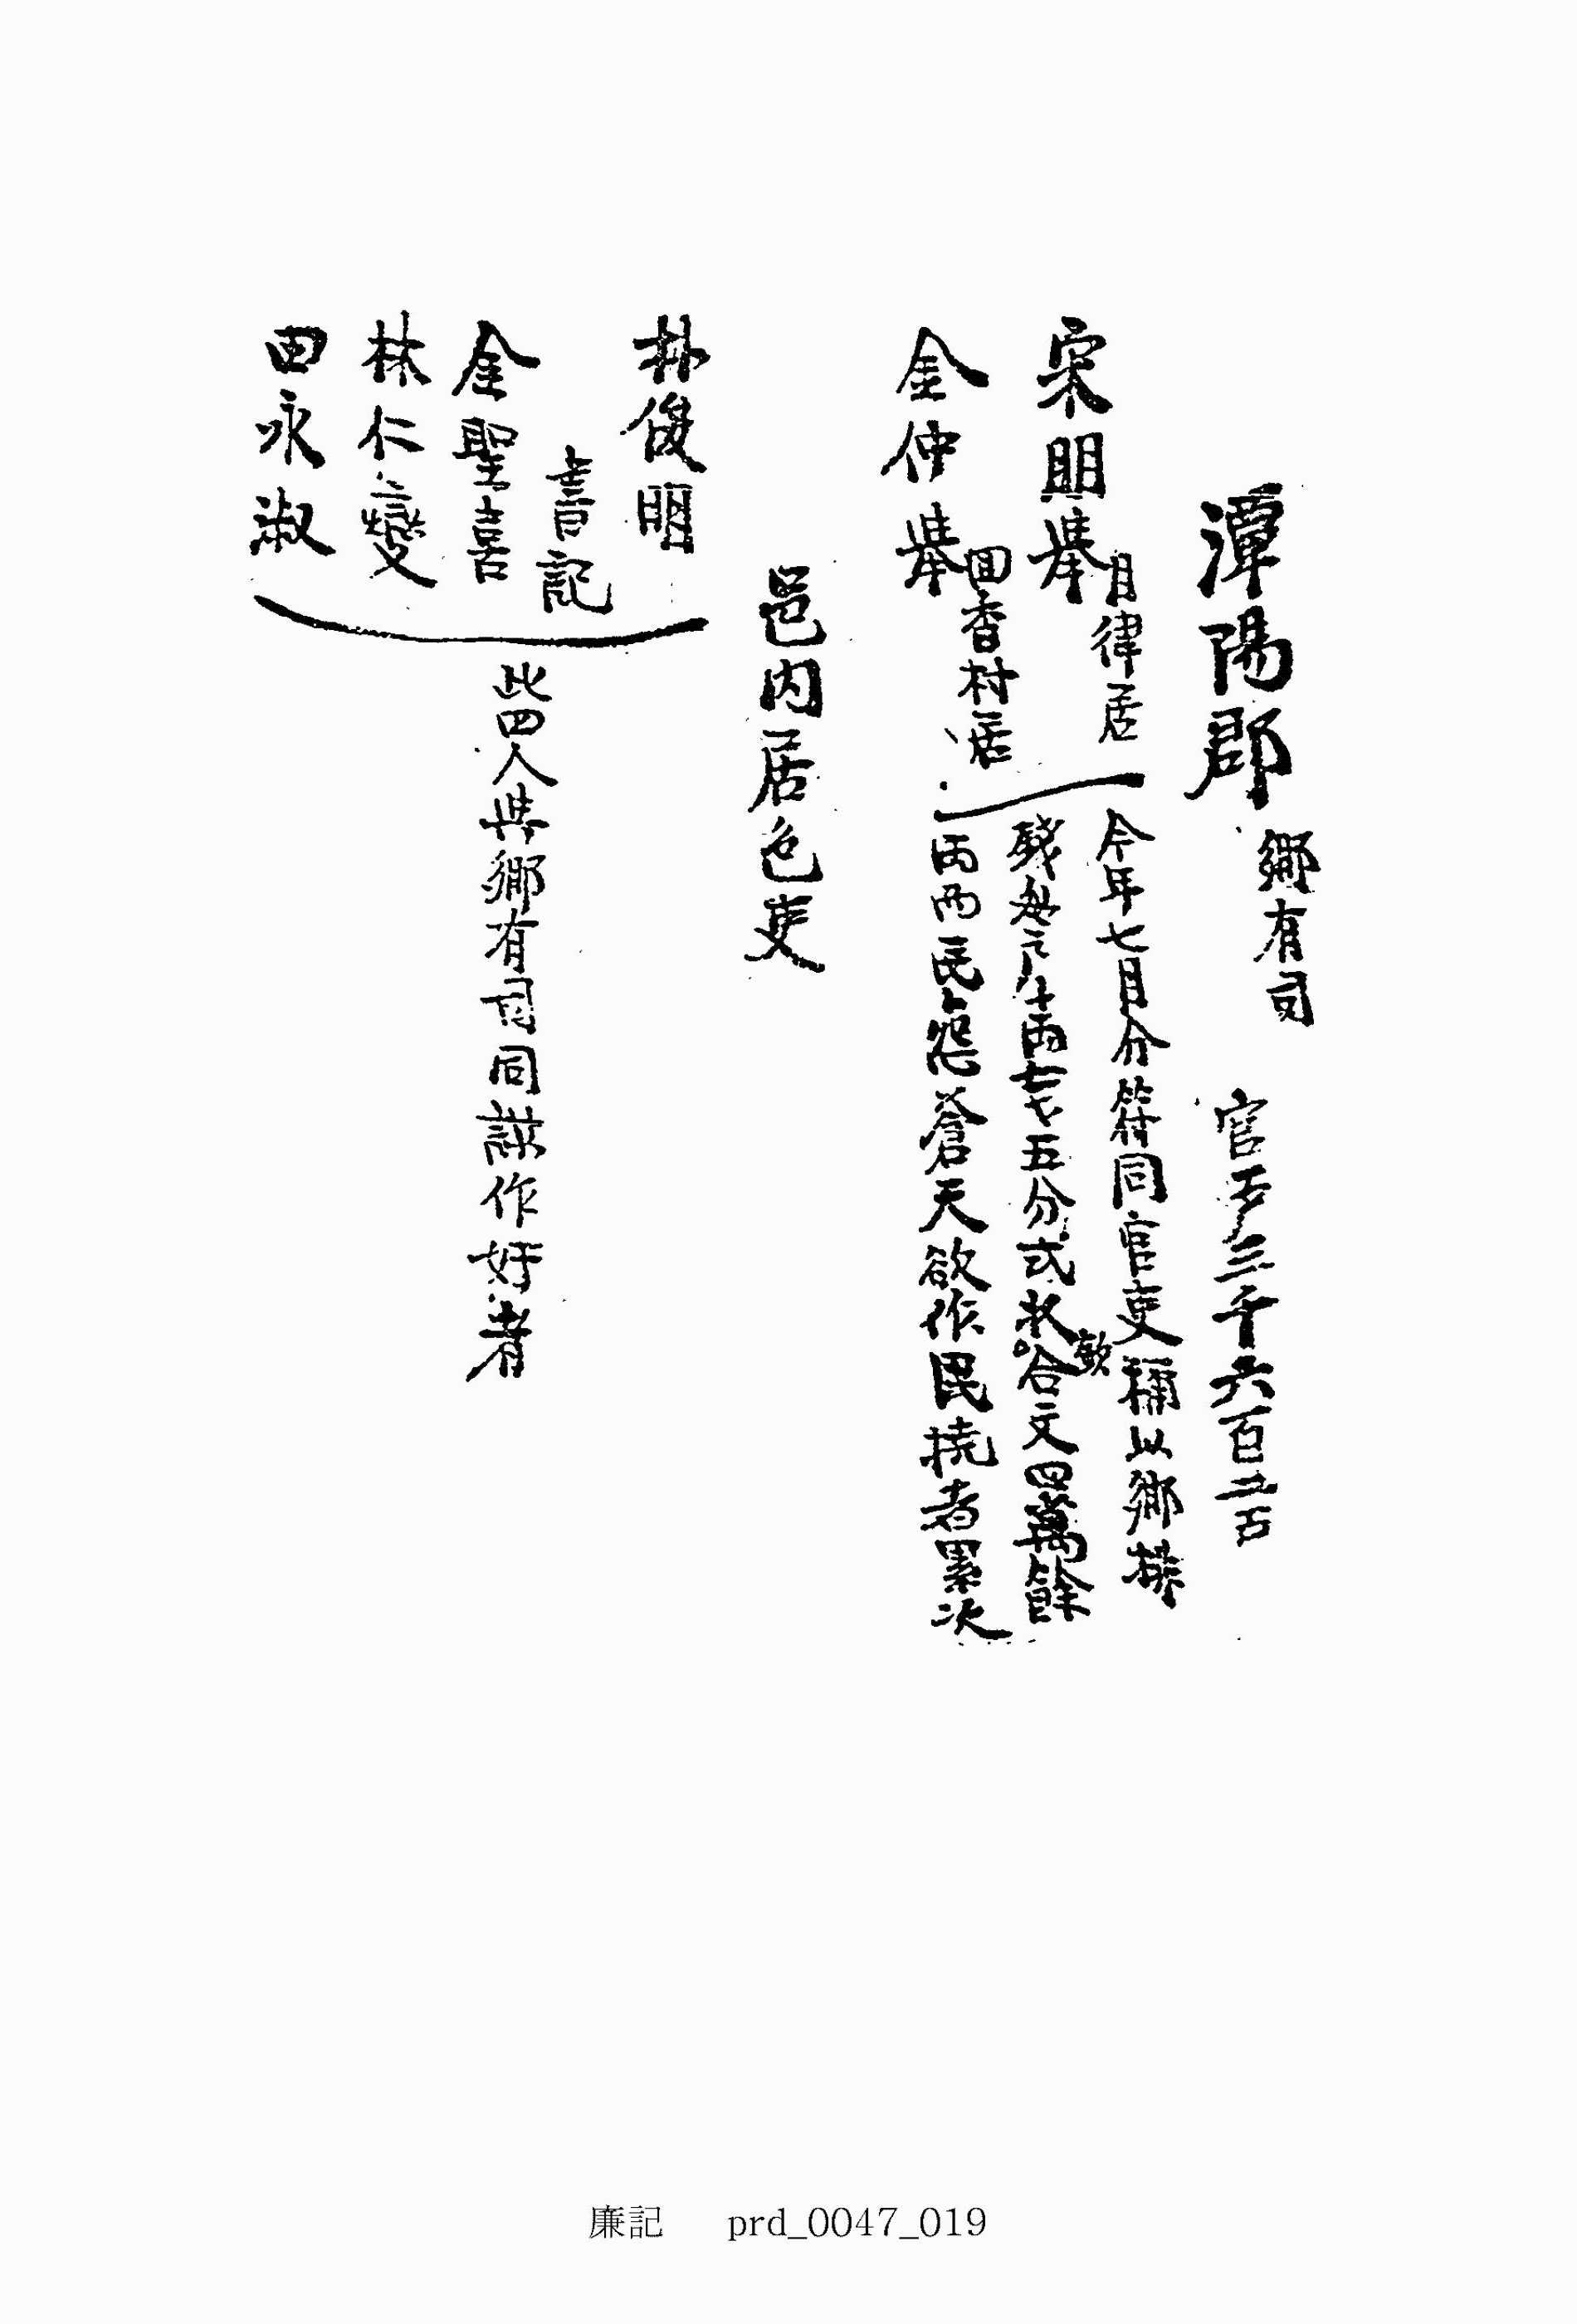 潭陽郡
鄕有司
官万三千六百五石
宋明擧 月律居
金仲擧 回香村居
今年七月分符同官吏稱以鄕排
殘每石八十兩七戔五分式收斂合文四萬餘
兩而民怨蒼天欲作民擾者累次
邑內居色吏
朴俊明
書記
金聖喜
林仁燮
田永淑
此四人與鄕有司同謀作奸者
廉記 prd_0047_019